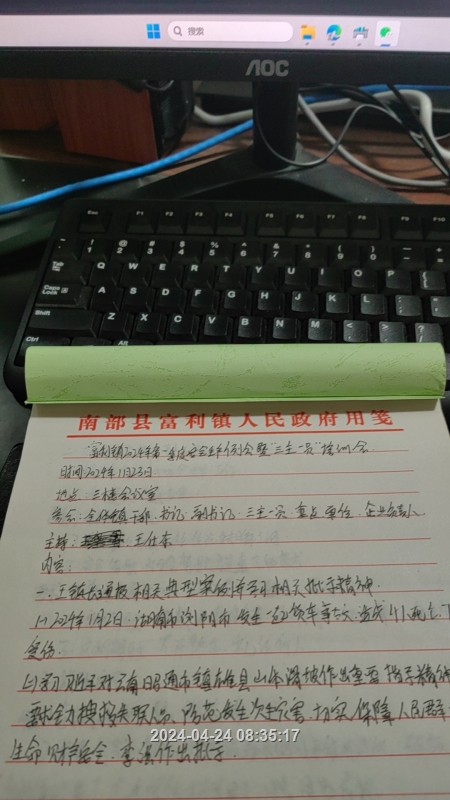 搜索
AOC
Esc F1 F2 F3 F4 F5 F6 F7 F8 F9 F10
Tab Q W E R T Y U I O P
Caps Lock A S D F G H J K L
Shift Z X C V B N M
Ctrl Alt
南部县富利镇人民政府用笺
富利镇2024年第一季度安全工作例会暨“三主一员”培训会
时间:2024年1月23日
地点:三楼会议室
参会:全体镇干部、书记、副书记、三主一员、重点单位、企业负责人
主持: 王仕杰
内容:
一、王镇长通报相关典型案例并学习相关批示精神
(1)2024年1月2日,湖南省浏阳市发生一起 车事故,造成 人死亡,
受伤.
(2)学习习近平对云南昭通市镇雄县山体滑坡作出重要指示精神
要求全力搜救失联人员、防范发生次生灾害,切实保障人民群
生命财产安全,李强作出批示
2024-04-24 08:35:17